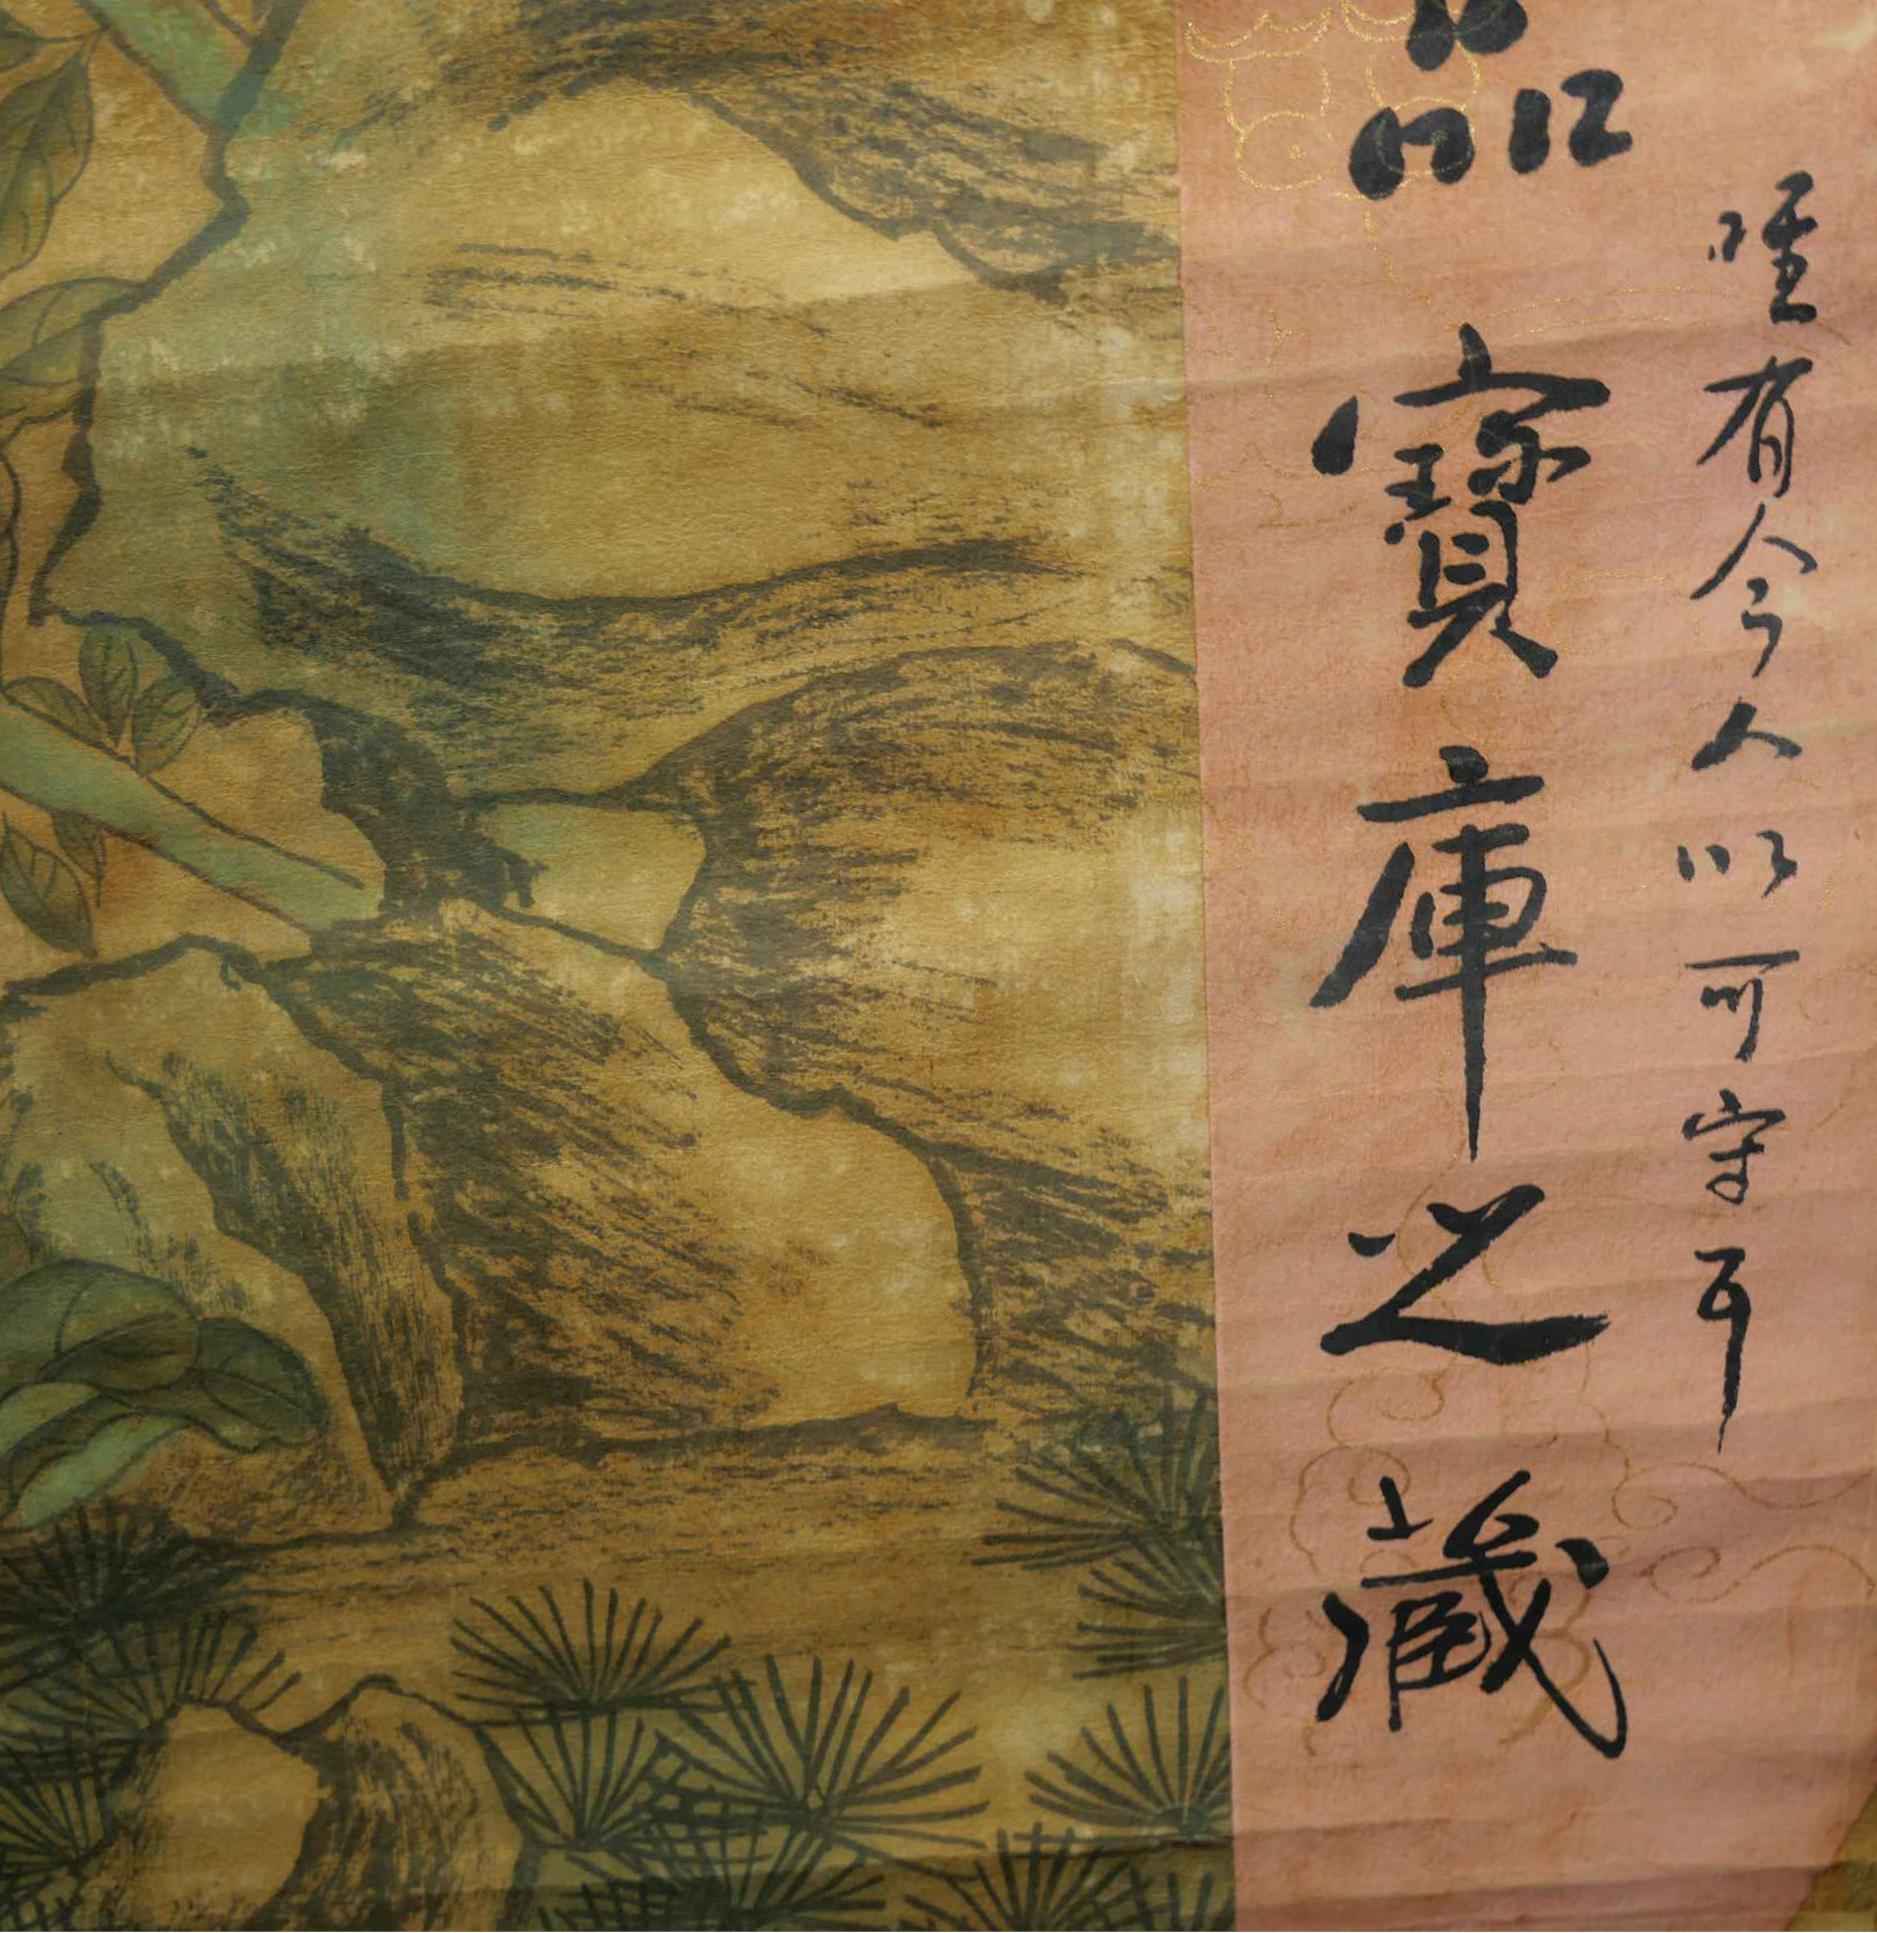 唯有今人以可守耳
品寶庫之藏